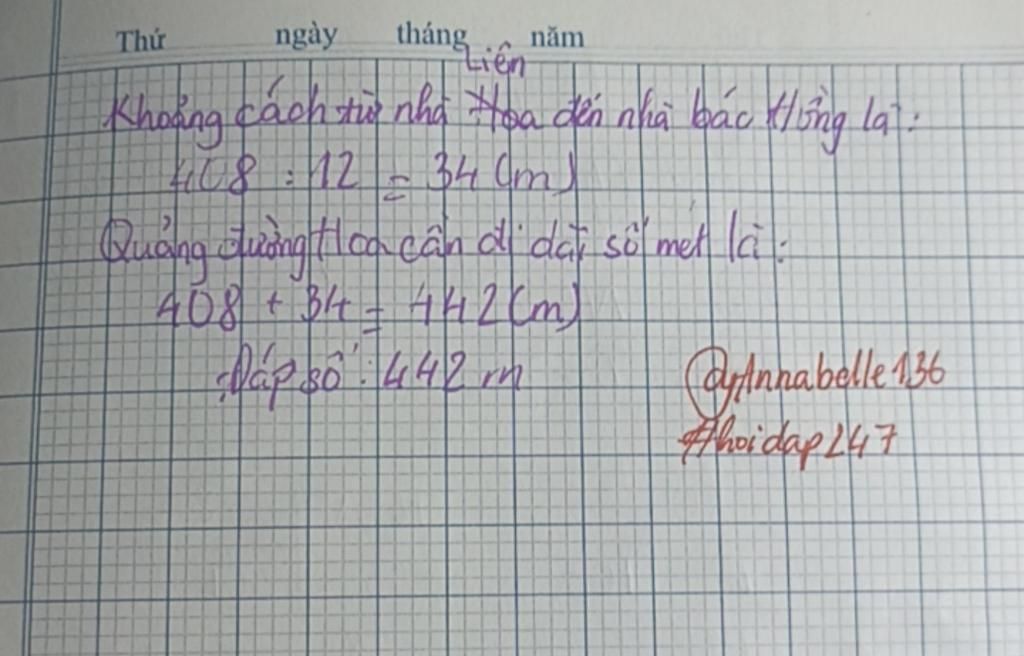 Thứ ngày tháng năm
Liên
Khoảng cách từ nhà Hoa đến nhà bác Hồng là:
408 : 12 = 34 (m)
Quảng đường Hoa cần đi dài số mét là:
408 + 34 = 442 (m)
Đáp số: 442 m
@yAnnabelle136
#hoidap247